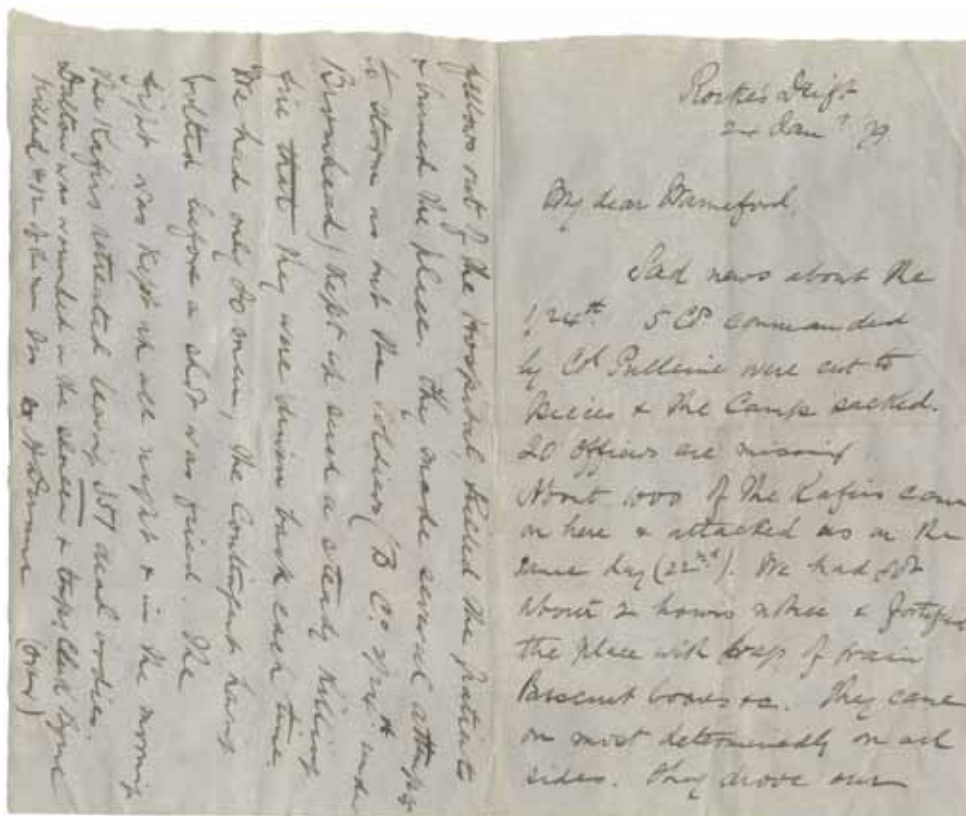 Rorke's Drift
24 Jany 79
My dear Warneford,
Sad news about the
1/24th 5 Cos commanded
by Col Pulleine were cut to
pieces & the Camp sacked.
20 Officers are missing
About 1000 of the Kafirs came
on here & attacked us on the
same day (22nd). We had got
about 2 hours notice & fortified
the place with bags of grain
Biscuit boxes &c. They came
on most determinedly on all
sides. They drove our
fellows out of the Hospital, killed the patients
& burned the place. They made several attempts
to storm us but the soldiers (B Co 2/24th under
Bromhead) kept up such a steady killing
fire that they were driven back each time.
We had only 80 men, the Contingent having
bolted before a shot was fired. The
fight was kept up all night & in the morning
the Kafirs retreated leaving 351 dead bodies.
Dalton was wounded in the shoulder & Clerk Byrne
killed & 12 of the
(over)